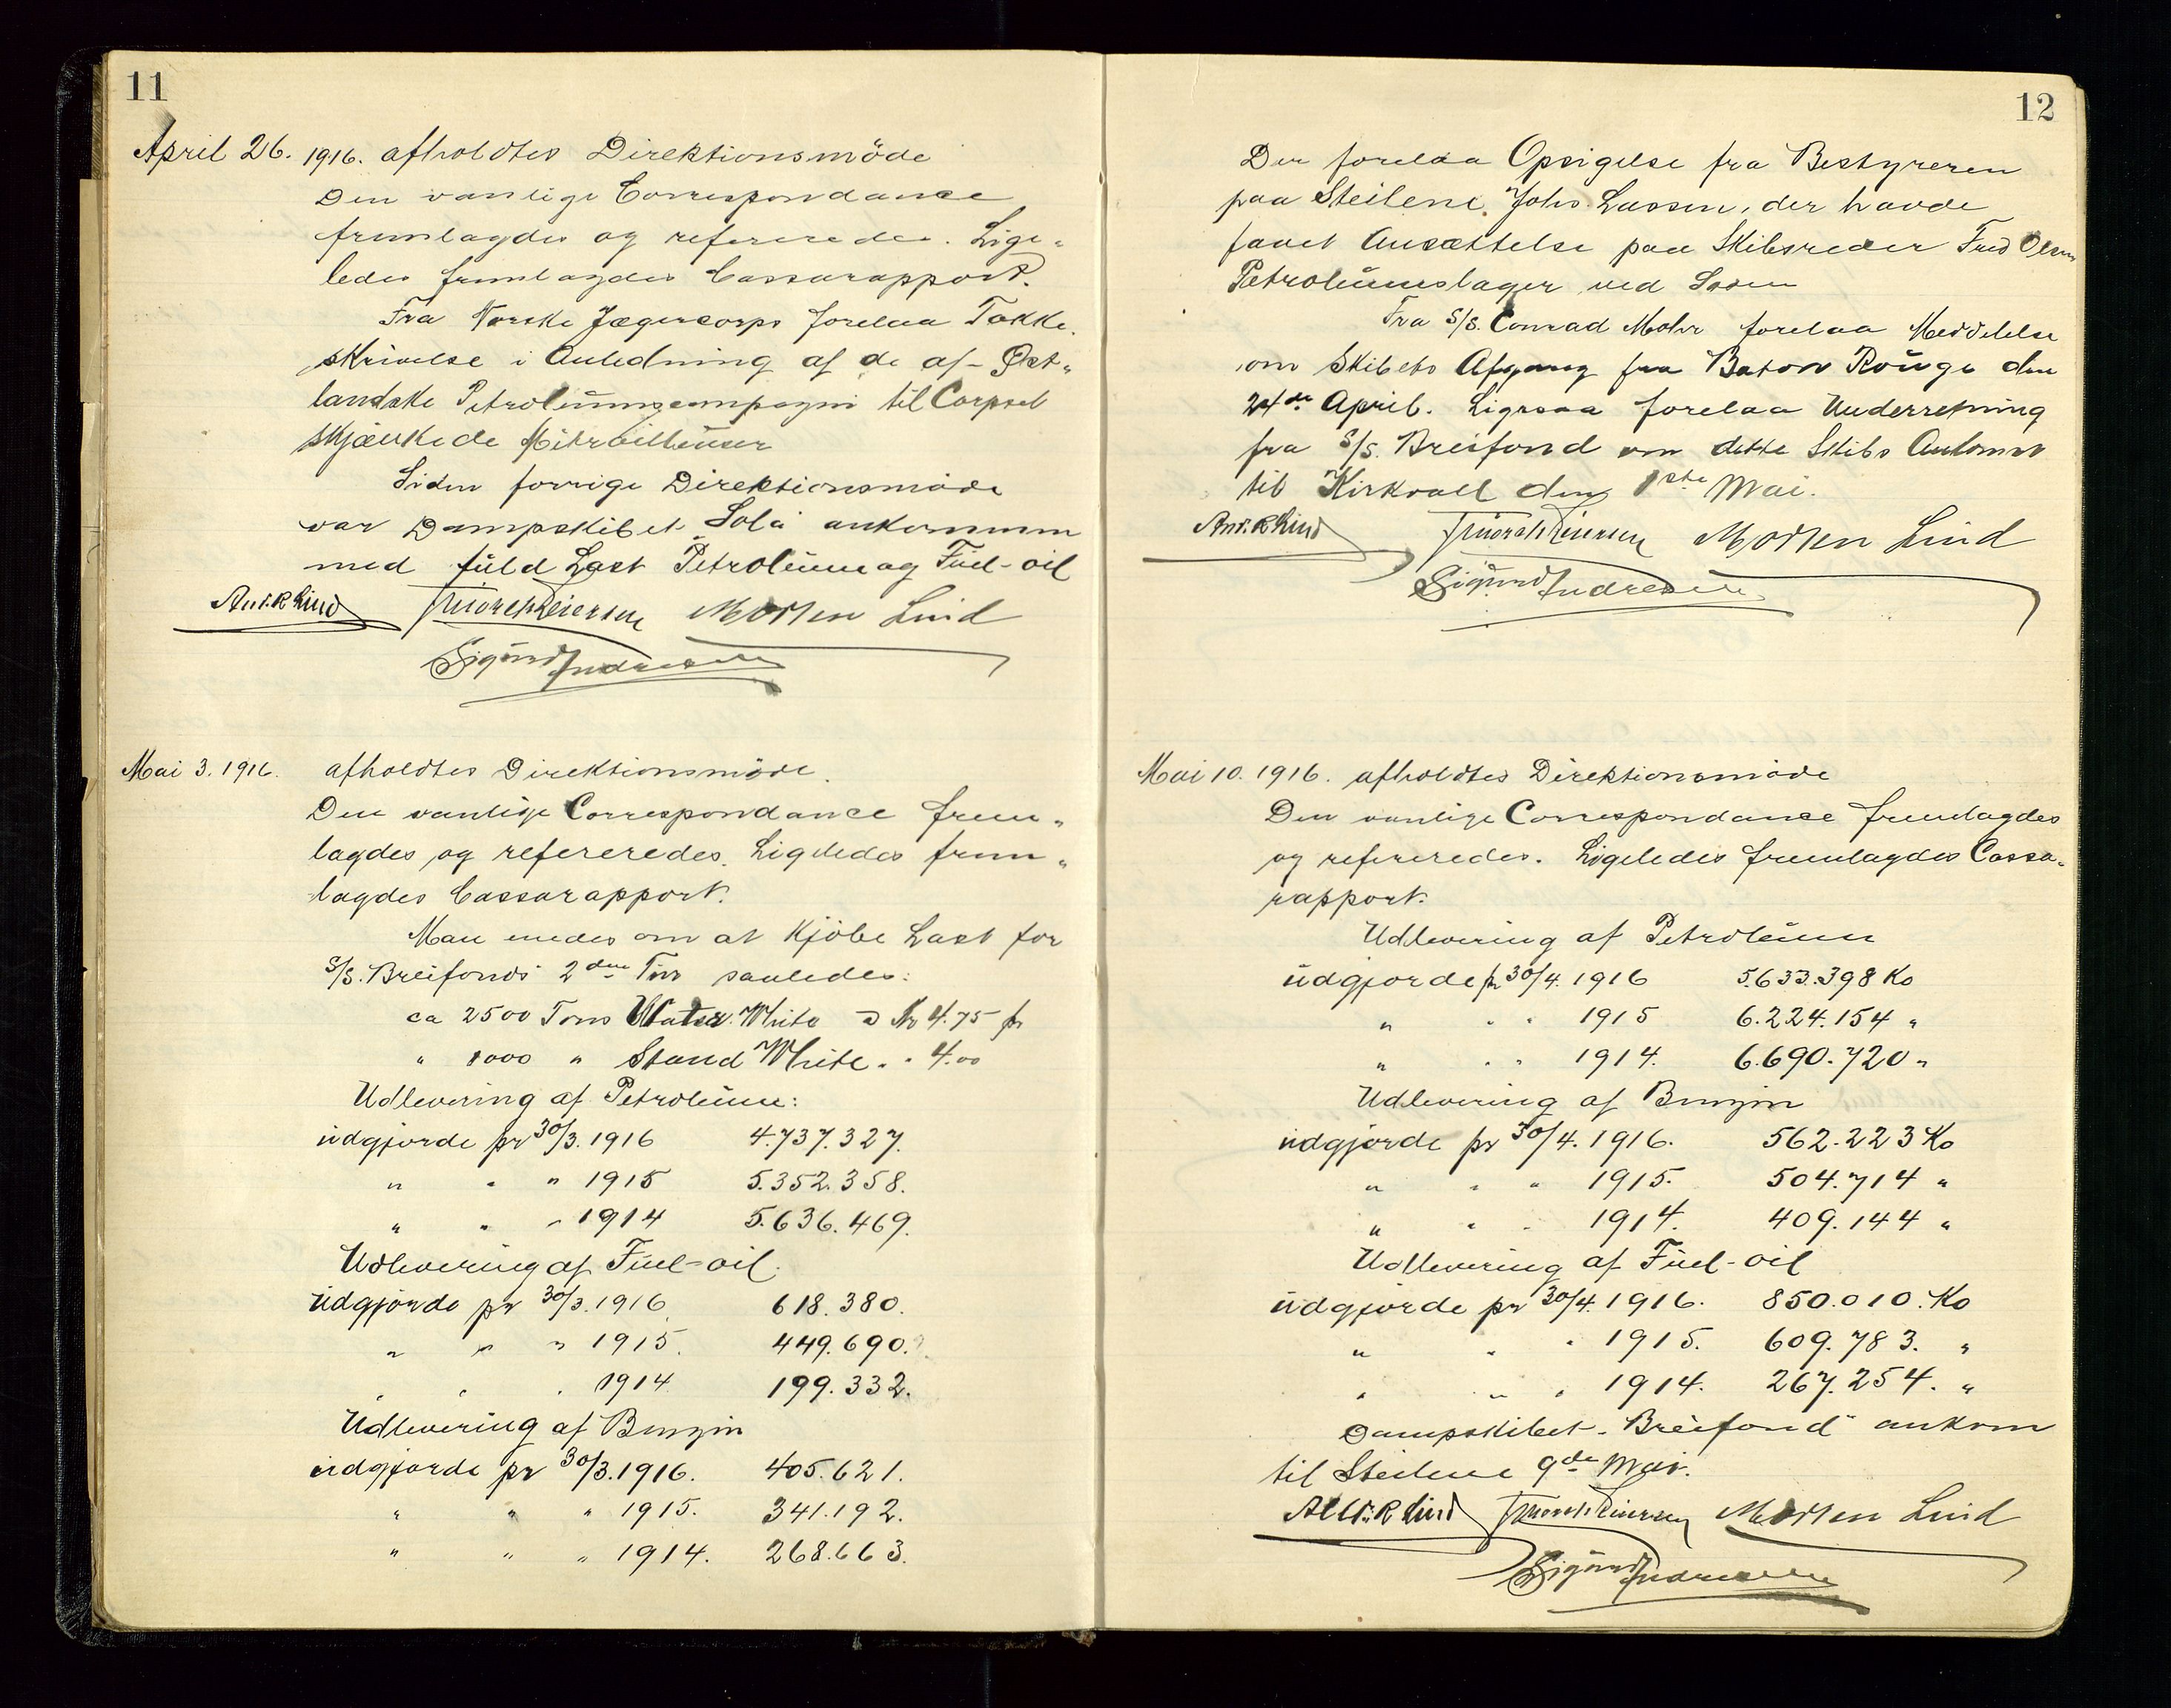 11
April 26. 1916. afholdtes Direktionsmöde
Den vanlige Correspondance
fremlagdes og refereredes. Lige„
ledes fremlagdes Cassarapport.
Fra Norske Jægercorps forelaa Takke„
skrivelse i Anledning af de af Øst„
landske Petroleumscompagni til Corpset
skjænkede Mitrailleuser
Siden forrige Direktionsmöde
var Dampskibet „Sola" ankommen
med füld Last Petroleüm og Füel-oil
And. R Lind Thorol Reiersen Morten Lind
Sigürd Andresen
Mai 3. 1916. afholdtes Direktionsmöde.
Den vanlige Correspondance frem„
lagdes og refereredes. Ligeledes frem„
lagdes Cassarapport.
Man enedes om at Kjöbe Last for
S/S. Breifonds 2den Tür saaledes:
ca 2500 Tons Water White à Kr 4.75 pr
„ 1000 „ Stand White „ „ 4.00
Udlevering af Petroleüm:
üdgjorde pr 30/3. 1916 4.737.327.
„ „ „ 1915 5.352.358.
„ „ „ 1914 5.636.469.
Udlevering af Füel-oil.
üdgjorde pr 30/3. 1916 618.380.
„ „ „ 1915. 449.690.
„ „ „ 1914 199.332.
Udlevering af Benzin
üdgjorde pr 30/3. 1916. 405.621.
„ „ „ 1915. 341.192.
„ „ „ 1914. 268.663.
12
Der forelaa Opsigelse fra Bestyreren
paa Steilene, Johs. Lassen, der havde
faaet Ansættelse paa Skibsreder Fred Olsens
Petroleümslager ved Soon
Fra S/S. Conrad Mohr forelaa Meddelelse
om Skibets Afgang fra Baton Roüge den
24de April. Ligesaa forelaa Underretning
fra S/S. Breifond om dette Skibs Ankomst
til Kirkvall den 1ste Mai.
And. R Lind Thorol Reiersen Morten Lind
Sigürd Andresen
Mai 10. 1916. afholdtes Direktionsmöde
Den vanlige Correspondance fremlagdes
og refereredes. Ligeledes fremlagdes Cassa„
rapport.
Udlevering af Petroleüm
üdgjorde pr 30/4. 1916 5.633.398 Ko
„ „ „ 1915 6.224.154 „
„ „ „ 1914. 6.690.720 „
Udlevering af Benzin
üdgjorde pr 30/4. 1916. 562.223 Ko
„ „ „ 1915. 504.714 „
„ „ „ 1914. 409.144 „
Udlevering af Füel-oil
üdgjorde pr 30/4. 1916. 850.010. Ko
„ „ „ 1915. 609.783. „
„ „ „ 1914. 267.254. „
Dampskibet „Breifond" ankom
til Steilene 9de Mai.
And. R Lind Thorol Reiersen Morten Lind
Sigürd Andresen